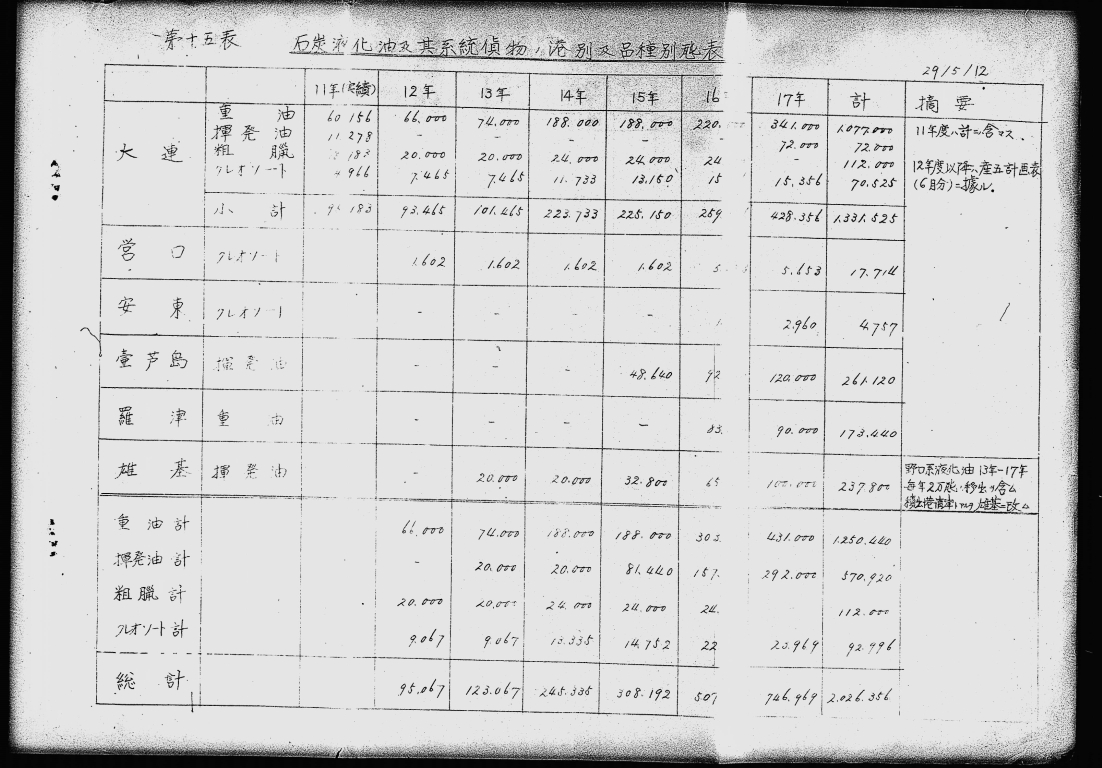 第十五表
石炭液化油及其系統貨物ノ港別及品種別瓲表
29/5/12
11年(実績) 12年 13年 14年 15年 16 17年 計 摘要
大連 重油 60 156 66.000 74.000 188.000 188.000 220. 341.000 1.077.000 11年度ハ計ニ含マス.
揮発油 11 278 - - - - 72.000 72.000
粗臘 183 20.000 20.000 24.000 24.000 24 - 112.000 12年度以降ハ産五計画表
クレオソート 966 7.465 7.465 11.733 13.150 15 15.356 70.525 (6月分)ニ據ル.
小計 183 93.465 101.465 223.733 225.150 259 428.356 1.331.525
営口 クレオソート 1.602 1.602 1.602 1.602 5. 5.653 17.714
安東 クレオソート - - - - 2.960 4.757
壷芦島 揮発油 - - - 48.640 92 120.000 261.120
羅津 重油 - - - - 83. 90.000 173.440
雄基 揮発油 - 20.000 20.000 32.800 65 100.000 237.800 野口系液化油13年-17年
毎年2万瓲
重油計 66.000 74.000 188.000 188.000 303. 431.000 1.250.440
揮発油計 - 20.000 20.000 81.440 157. 292.000 570.920
粗臘計 20.000 20.000 24.000 24.000 24. 112.000
クレオソート計 9.067 9.067 13.335 14.752 22 23.969 92.996
総計 95.067 123.067 245.335 308.192 507 746.969 2.026.356